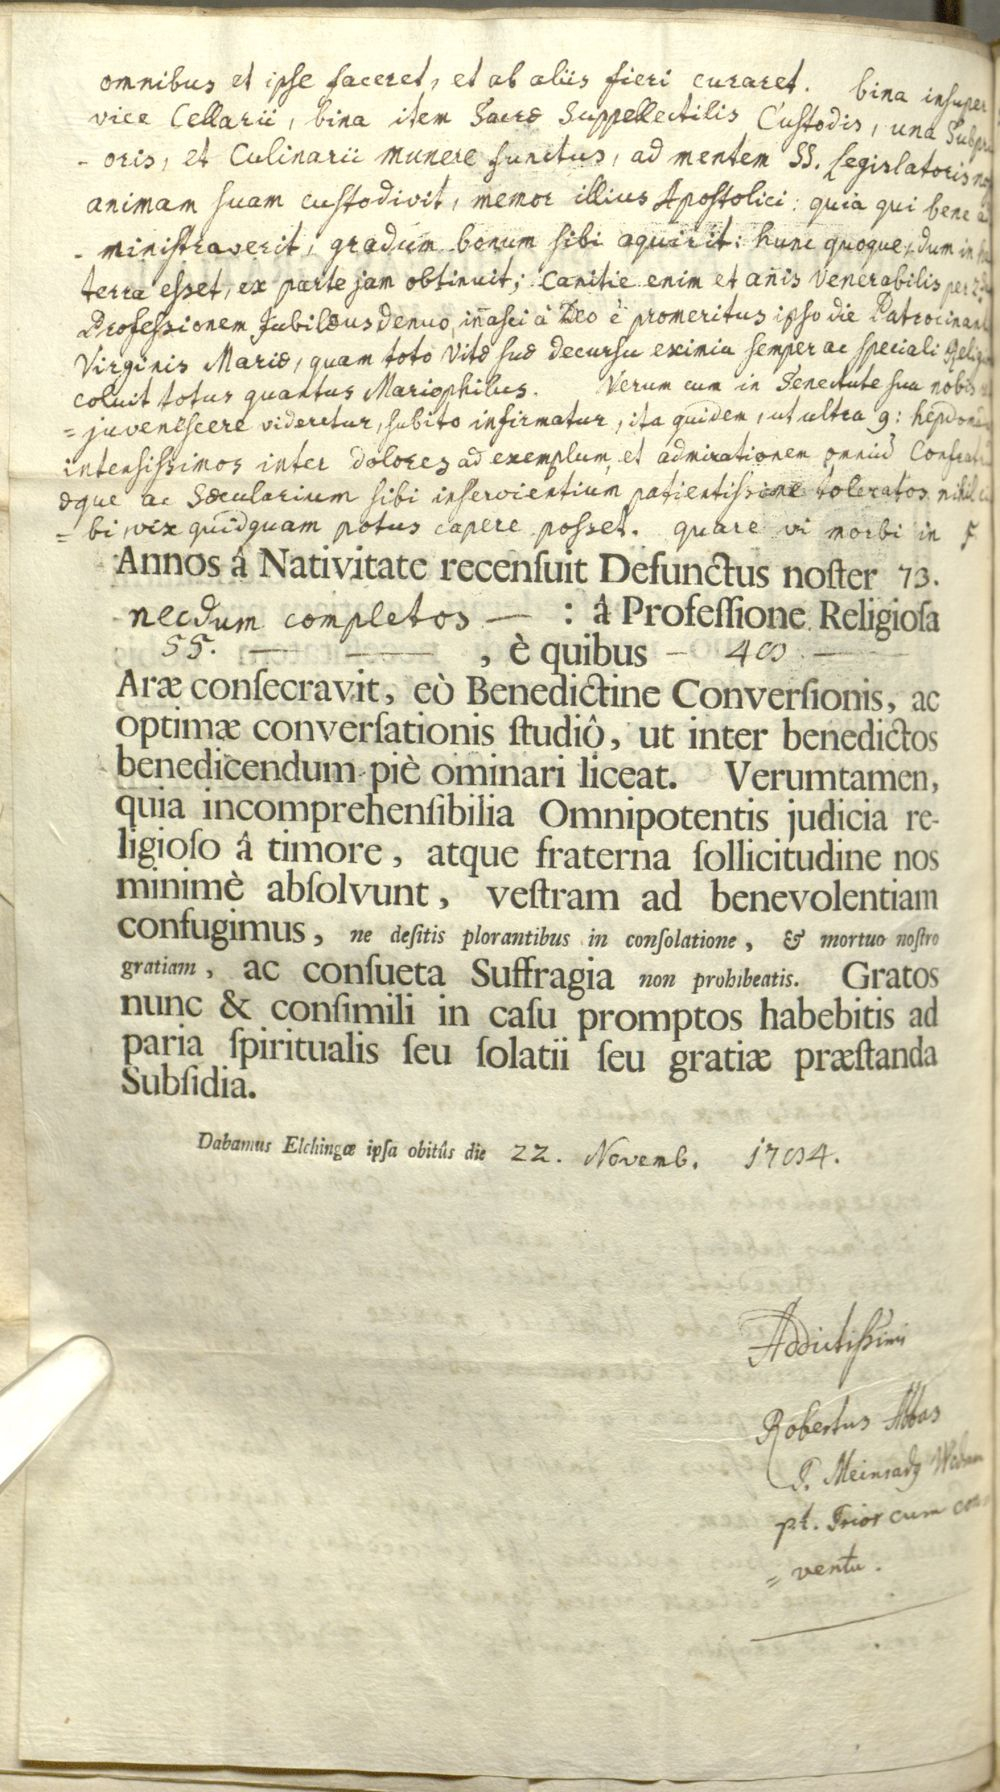 omnibus et ipse faceret, et ab aliis fieri curaret. bina insuper
vice Cellarii, bina item Sacræ Suppellectilis Custodis, una
- oris, et Culinarii munere functus, ad mentem SS. Legislatoris
animam suam custodivit, memor illius Apostolici: quia qui bene
- ministraverit, gradum bonum sibi aquirit: hunc quoque, dum in
terra esset, ex parte jam obtinuit; Canitie enim et añis Venerabilis per
Professionem Jubilæus denuo iñasci à Deo è promeritus ipso die
Virginis Mariæ, quam toto Vitæ suæ decursu eximia semper ac speciali
coluit totus quantus Mariophilus. Verum cum in Senectute sua nobis
= juvenescere videretur, subito infirmatur, ita quidem, ut ultra 9:
intensissimos inter dolores ad exemplum et admirationem omniū
æque ac Sæcularium sibi inservientium patientissime toleratos nihil
= bi, vix quidquam potus capere posset. quare vi morbi in
Annos â Nativitate recenſuit Defunctus noſter 73.
necdum completos — : â Profeſſione Religioſa
55. — — , è quibus — 40 —
Aræ conſecravit, eò Benedictine Converſionis, ac
optimæ converſationis ſtudiô, ut inter benedictos
benedicendum piè ominari liceat. Verumtamen,
quia incomprehenſibilia Omnipotentis judicia re-
ligioſo â timore, atque fraterna ſollicitudine nos
minimè abſolvunt, veſtram ad benevolentiam
confugimus, ne deſitis plorantibus in conſolatione, & mortuo noſtro
gratiam, ac conſueta Suffragia non prohibeatis. Gratos
nunc & conſimili in caſu promptos habebitis ad
paria ſpiritualis ſeu ſolatii ſeu gratiæ præſtanda
Subſidia.
Dabamus Elchingæ ipſa obitûs die 22. Novemb. 1704.
Addictissimi
Robertus Abbas
P. Meinradg
p.t. Prior cum
= ventu.